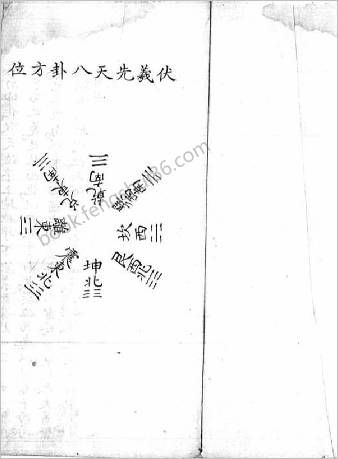 伏羲先天八卦方位
乾南
兌東南
離東
震東北
巽西南
坎西
艮西北
坤北
book.fengshui86.com